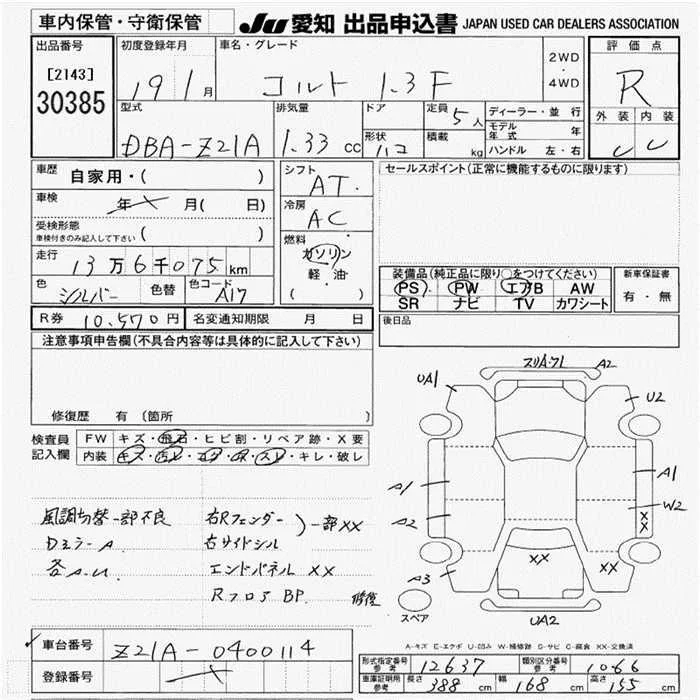 車内保管・守衛保管
JU 愛知 出品申込書 JAPAN USED CAR DEALERS ASSOCIATION
出品番号
[2143]
30385
初度登録年月
19 1月
車名・グレード
コルト 1.3F
2WD
・
4WD
評価点
R
外装 内装
型式
DBA-Z21A
排気量
1.33 cc
ドア
形状
ハコ
定員 5人
積載 kg
ディーラー・並行
モデル年式 年
ハンドル 左・右
車歴 自家用・( )
車検 年 月( 日)
受検形態
車検付きのみ記入して下さい ( )
走行
13万6千075km
色
シルバー
色替
色コード
A17
シフト
AT.
冷房
AC
燃料
ガソリン
軽・油
( )
セールスポイント(正常に機能するものに限ります)
装備品(純正品に限り○をつけてください)
PS PW エアB AW
SR ナビ TV カワシート
新車保証書
有・無
後日品
R券 10.570円 名変通知期限 月 日
注意事項申告欄(不具合内容等は具体的に記入して下さい)
修復歴 有(箇所
検査員
記入欄
FW キズ・飛石・ヒビ割・リペア跡・X要
内装 キズ・汚レ・コゲ・穴・スレ・キレ・破レ
風調切替一部不良
Dミラー A
各A.U
右Rフェンダー
右サイドシル
)一部XX
エンドパネル XX
Rフロア BP. 修復
スリA・フL A2
UA1
U2
A1
A1
A2
W2
XX
A3
XX
XX
UA2
スペア
A-キズ E-エクボ U-凹み W-補修跡 S-サビ C-腐食 XX-交換済
車台番号
Z21A-0400114
登録番号
形式指定番号
参考
12637
類別区分番号
参考
1066
車庫証明用
参考
長さ 388 cm
幅 168 cm
高さ 155 cm